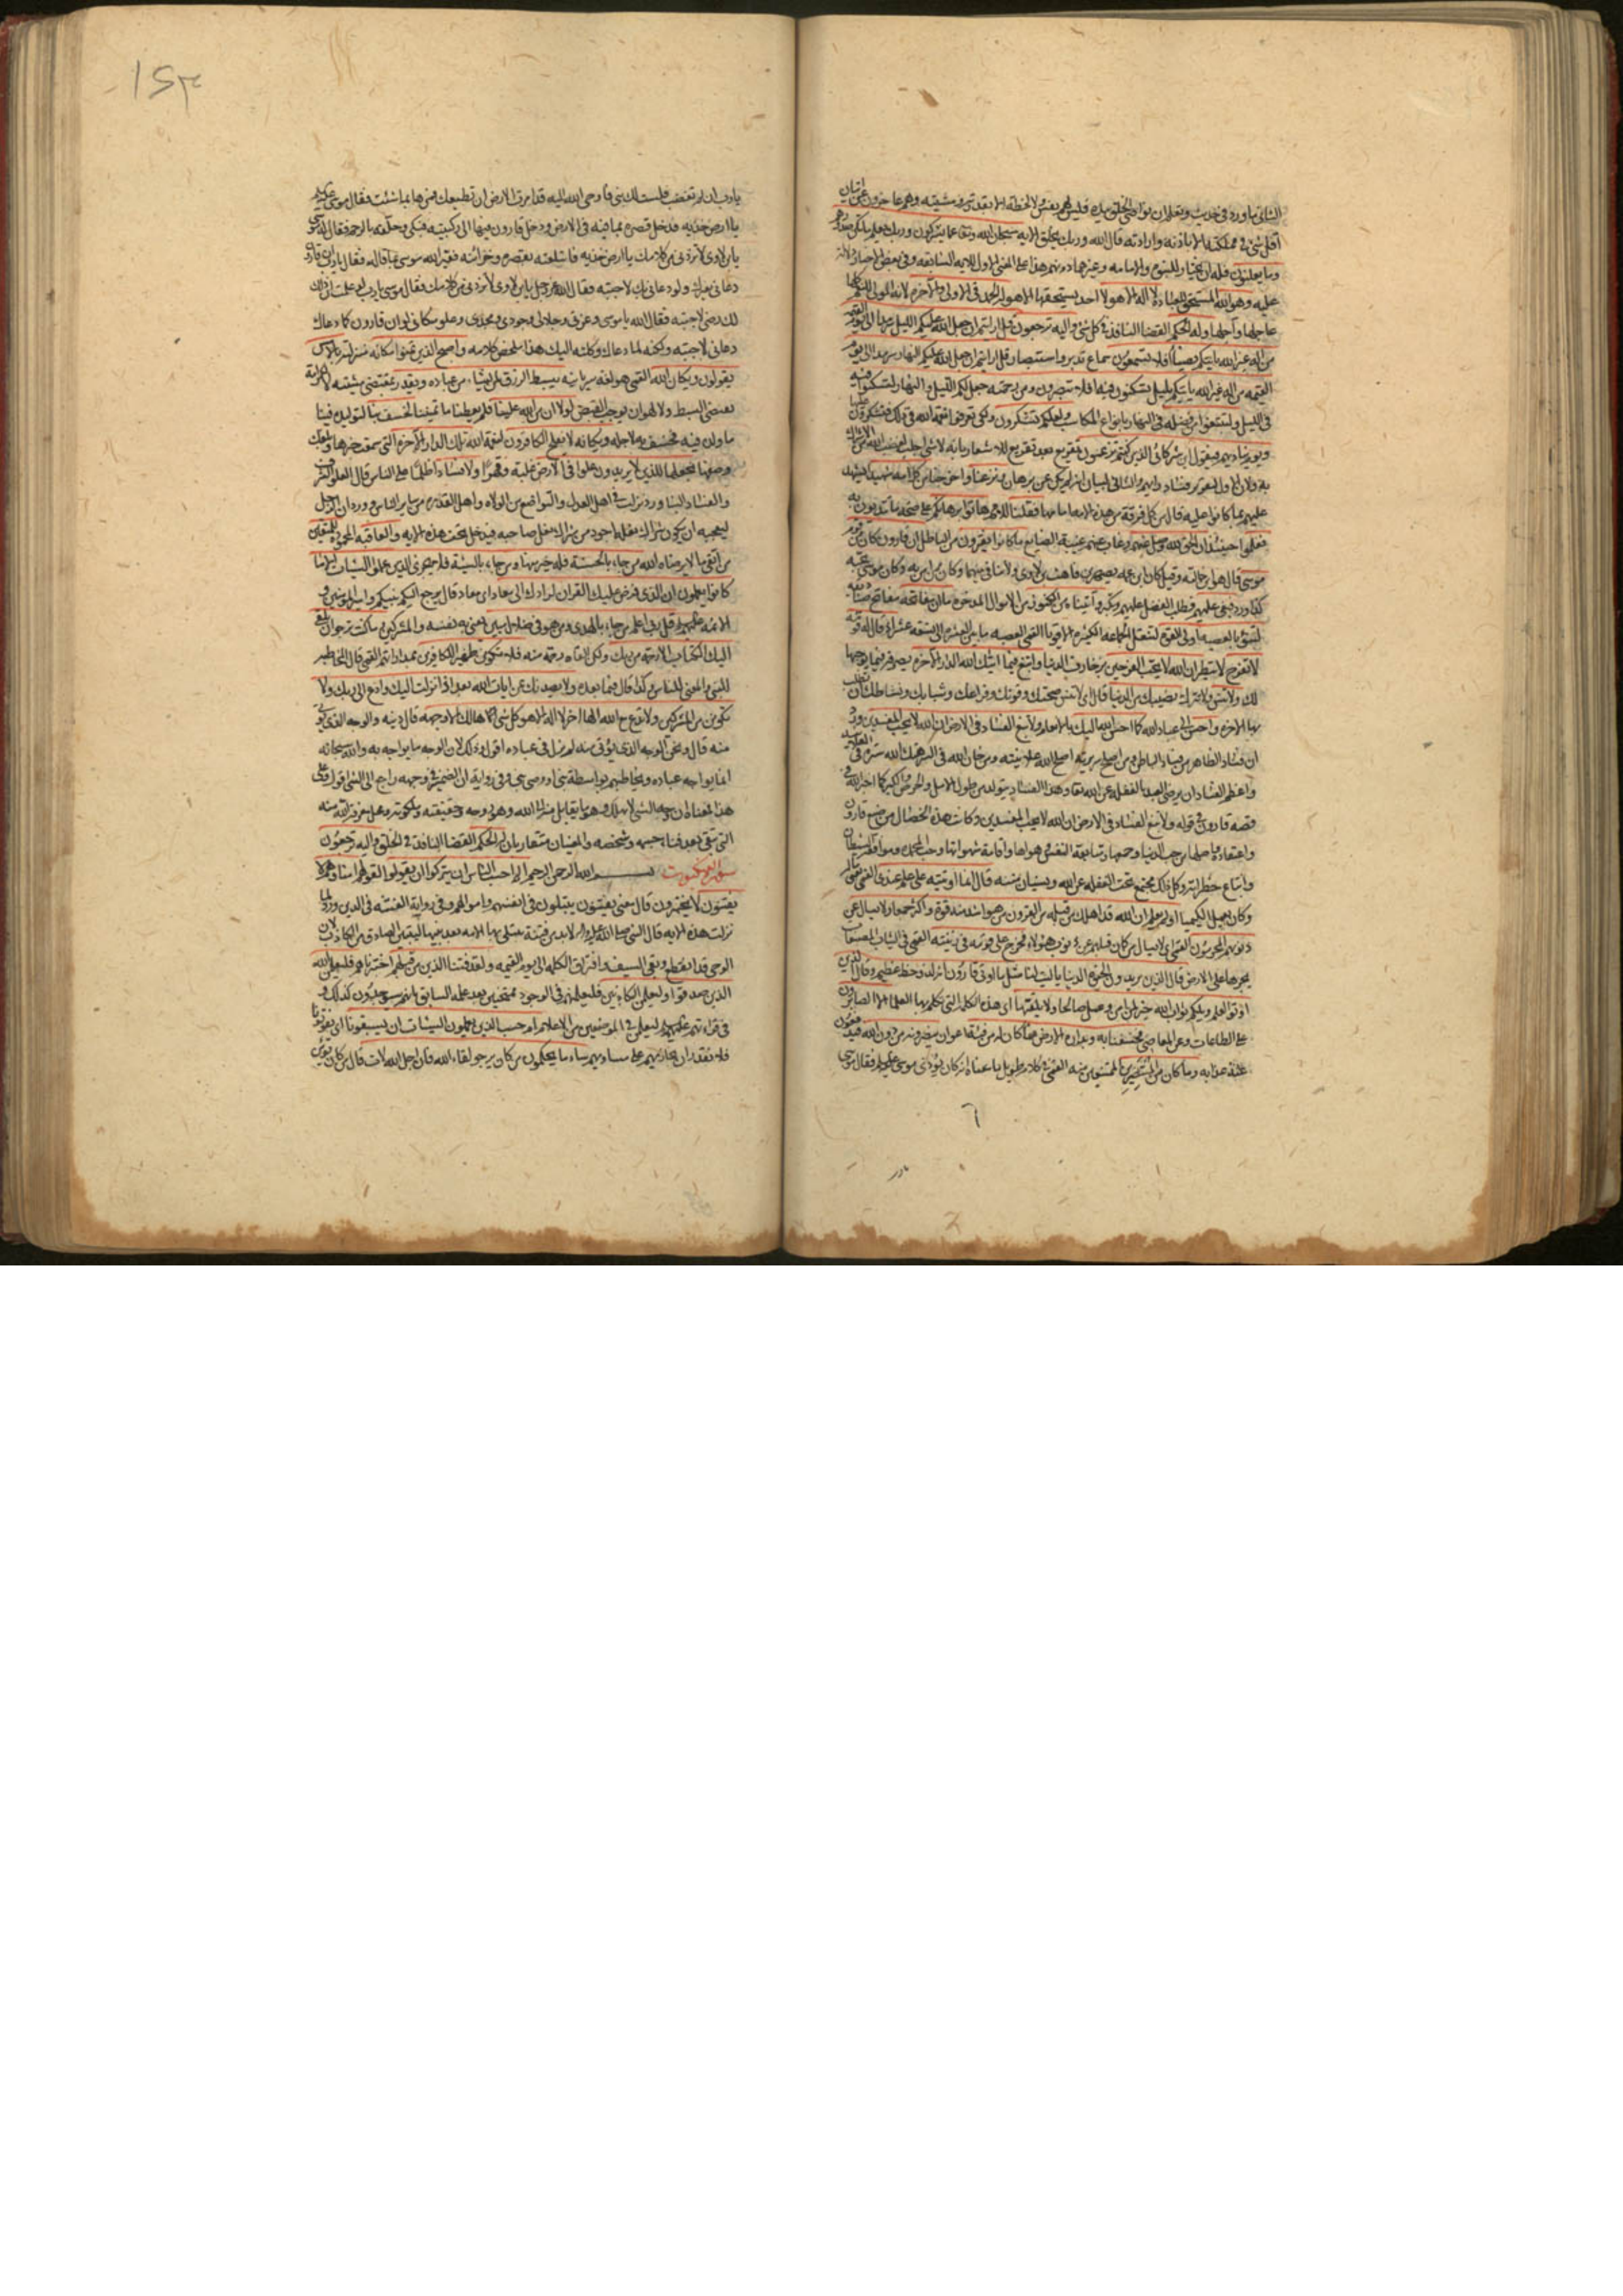 الثاني ما ورد في حديث ويعلم ان نواصي الخلق بيده فليس لهم نفس ولا لحظة الا بقدرته ومشيته وهم عاجزون عن اتيان
اقل شيء في مملكته الا باذنه وارادته قال الله وربك يخلق الاية سبحان الله وتعالى عما يشركون وربك يعلم ما تكن صدورهم
وما يعلنون فله ان يختار للنبوة والامامة وغيرهما دونهم هذا على المعنى الاول للاية السابقة وفي بعض الاخبار دلالة
عليه وهو الله المستحق للعبادة لا اله الا هو لا احد يستحقها الا هو له الحمد في الاولى والاخرة لانه المولى للنعم كلها
عاجلها وآجلها وله الحكم القضا النافذ في كل شيء واليه ترجعون قل ارايتم ان جعل الله عليكم الليل سرمدا الى يوم القيمة
من اله غير الله ياتيكم بضياء افلا تسمعون سماع تدبر واستبصار قل ارايتم ان جعل الله عليكم النهار سرمدا الى يوم
القيمة من اله غير الله ياتيكم بليل تسكنون فيه افلا تبصرون ومن رحمته جعل لكم الليل والنهار لتسكنوا فيه
في الليل ولتبتغوا من فضله في النهار بانواع المكاسب ولعلكم تشكرون ولكي تعرفوا نعمة الله في ذلك فتشكروه عليها
ويوم يناديهم فيقول اين شركائي الذين كنتم تزعمون تقريع بعد تقريع للاشعار بانه لا شيء اجلب لغضب الله من الاشراك
به ولان الاول لتقرير فساد رايهم والثاني لبيان انه لم يكن عن برهان ونزعنا واخرجنا من كل امة شهيدا يشهد
عليهم بما كانوا عليه قال من كل فرقة من هذه الامة امامها فقلنا للامم هاتوا برهانكم على صحة ما تدينون به
فعلموا حينئذ ان الحق لله وضل عنهم وغاب عنهم غيبة الضايع ما كانوا يفترون من الباطل ان قارون كان من قوم
موسى قال هو ابن خالته وقيل كان ابن عمه يصهر بن قاهث بن لاوي ولا تنافي بينهما وكان ممن امن به وكان موسى عمه
كذا ورد فبغى عليهم فطلب الفضل عليهم وتكبر وآتيناه من الكنوز من الاموال المدخرة ما ان مفاتحه مفاتح صناديقه
لتنوء بالعصبة اولي القوة لتثقل الجماعة الكثيرة الاقويا القمي العصبة ما بين العشرة الى تسعة عشر اذ قال له قومه
لا تفرح لا تبطر ان الله لا يحب الفرحين بزخارف الدنيا وابتغ فيما اتيك الله الدار الاخرة بصرفه فيما يوجبها
لك ولا تنس ولا تترك نصيبك من الدنيا قال اي لا تنس صحتك وقوتك وفراغك وشبابك ونشاطك ان تطلب
بها الاخرة واحسن الى عباد الله كما احسن الله اليك بالانعام ولا تبغ الفساد في الارض ان الله لا يحب المفسدين ورد
ان فساد الظاهر من فساد الباطن ومن اصلح سريرته اصلح الله علانيته ومن خان الله في السر هتك الله ستره في العلانية
واعظم الفساد ان يرضى العبد بالغفلة عن الله تعالى وهذا الفساد يتولد من طول الامل والحرص والكبر كما اخبر الله في
قصة قارون في قوله ولا تبغ الفساد في الارض ان الله لا يحب المفسدين وكانت هذه الخصال من صنع قارون
واعتقاده واصلها من حب الدنيا وجمعها ومتابعة النفس هواها واقامة شهواتها وحب المحمدة وموافقة الشيطان
واتباع خطراته وكل ذلك مجتمع تحت الغفلة عن الله ونسيان مننه قال انما اوتيته على علم عندي القمي يعني ماله
وكان يعمل الكيميا اولم يعلم ان الله قد اهلك من قبله من القرون من هو اشد منه قوة واكثر جمعا ولا يسال عن
ذنوبهم المجرمون القمي اي لا يسال من كان قبلهم عن ذنوب هؤلاء فخرج على قومه في زينته القمي في الثياب المصبغات
يجرها على الارض قال الذين يريدون الحيوة الدنيا يا ليت لنا مثل ما اوتي قارون انه لذو حظ عظيم وقال الذين
اوتوا العلم ويلكم ثواب الله خير لمن امن وعمل صالحا ولا يلقيها اي هذه الكلمة التي تكلم بها العلما الا الصابرون
على الطاعات وعن المعاصي فخسفنا به وبداره الارض فما كان له من فئة اعوان ينصرونه من دون الله فيدفعون
عنه عذابه وما كان من المنتصرين الممتنعين منه القمي في كلام طويل ما معناه انه كان يؤذي موسى عليه السلام فقال موسى
١٥٣
يا رب ان لم تغضب لي فلست لك بنبي فاوحى الله اليه قد امرت الارض ان تطيعك فمرها بما شئت فقال موسى عليه السلام
يا ارض خذيه فدخل قصره بما فيه في الارض ودخل قارون فيها الى ركبتيه فبكى وحلفه بالرحم فقال له موسى
يا بن لاوي لا تزدني من كلامك يا ارض خذيه فابتلعته بقصره وخزائنه فعير الله موسى بما قاله فقال يا رب ان قارون
دعاني بغيرك ولو دعاني بك لاجبته فقال الله عز وجل يا بن لاوي لا تزدني من كلامك فقال موسى يا رب لو علمت ان ذلك
لك رضى لاجبته فقال الله يا موسى وعزتي وجلالي وجودي ومجدي وعلو مكاني لو ان قارون كما دعاك
دعاني لاجبته ولكنه لما دعاك وكلته اليك هذا ملخص كلامه واصبح الذين تمنوا مكانه منزلته بالامس
يقولون ويكان الله القمي هو لغة سريانية يبسط الرزق لمن يشاء من عباده ويقدر بمقتضى مشيته لا لكرامة
تقتضي البسط ولا لهوان يوجب القبض لولا ان من الله علينا فلم يعطنا ما تمنينا لخسف بنا لتوليده فينا
ما ولده فيه فخسف به لاجله ويكانه لا يفلح الكافرون لنعمة الله تلك الدار الاخرة التي سمعت خبرها وبلغك
وصفها نجعلها للذين لا يريدون علوا في الارض غلبة وقهرا ولا فسادا ظلما على الناس قال العلو الشرف
والفساد البنا ورد نزلت في اهل العدل والتواضع من الولاة واهل القدرة من ساير الناس وورد ان الرجل
ليعجبه ان يكون شراك نعله اجود من شراك نعل صاحبه فيدخل تحت هذه الاية والعاقبة المحمودة للمتقين
من اتقى ما لا يرضاه الله من جاء بالحسنة فله خير منها ومن جاء بالسيئة فلا يجزى الذين عملوا السيئات الا ما
كانوا يعملون ان الذي فرض عليك القران لرادك الى معاد اي معاد قال يرجع اليكم نبيكم وامير المؤمنين و
الائمة عليهم السلام قل ربي اعلم من جاء بالهدى ومن هو في ضلال مبين يعني به نفسه والمشركين وما كنت ترجوا ان يلقى
اليك الكتاب الا رحمة من ربك ولكن القاه رحمة منه فلا تكونن ظهيرا للكافرين بمداراتهم القمي قال المخاطبة
للنبي والمعنى للناس وكذا قال فيما بعده ولا يصدنك عن ايات الله بعد اذ انزلت اليك وادع الى ربك ولا
تكونن من المشركين ولا تدع مع الله الها اخر لا اله الا هو كل شيء هالك الا وجهه قال دينه والوجه الذي يؤتى
منه قال ونحن الوجه الذي يؤتى منه لم نزل في عباده اقول وذلك لان الوجه ما يواجه به والله سبحانه
انما يواجه عباده ويخاطبهم بواسطة نبي او وصي نبي وفي رواية ان الضمير في وجهه راجع الى الشيء اقول وعلى
هذا معناه ان وجه الشيء لا يهلك وهو ما يقابل منه الى الله وهو روحه وحقيقته وملكوته ومحل معرفة الله منه
التي تبقى بعد فناء جسمه وشخصه والمعنيان متقاربان له الحكم القضا النافذ في الخلق واليه ترجعون
سورة العنكبوت بسم الله الرحمن الرحيم الم احسب الناس ان يتركوا ان يقولوا لقولهم امنا وهم لا
يفتنون لا يختبرون قال معنى يفتنون يبتلون في انفسهم واموالهم وفي رواية الفتنة في الدين وورد لما
نزلت هذه الاية قال النبي صلى الله عليه واله لا بد من فتنة تبتلى بها الامة بعد نبيها ليتعين الصادق من الكاذب لان
الوحي قد انقطع وبقي السيف وافتراق الكلمة الى يوم القيمة ولقد فتنا الذين من قبلهم اختبرناهم فليعلمن الله
الذين صدقوا وليعلمن الكاذبين فليعلمنهم في الوجود ممتحنين بعد علمه السابق بانهم سيوجدون كذلك و
في قراءتهم عليهم السلام ليعلمن في الموضعين من الاعلام ام حسب الذين يعملون السيئات ان يسبقونا ان يفوتونا
فلا نقدر ان نجازيهم على مساويهم ساء ما يحكمون من كان يرجو لقاء الله فان اجل الله لات قال من كان يؤمن